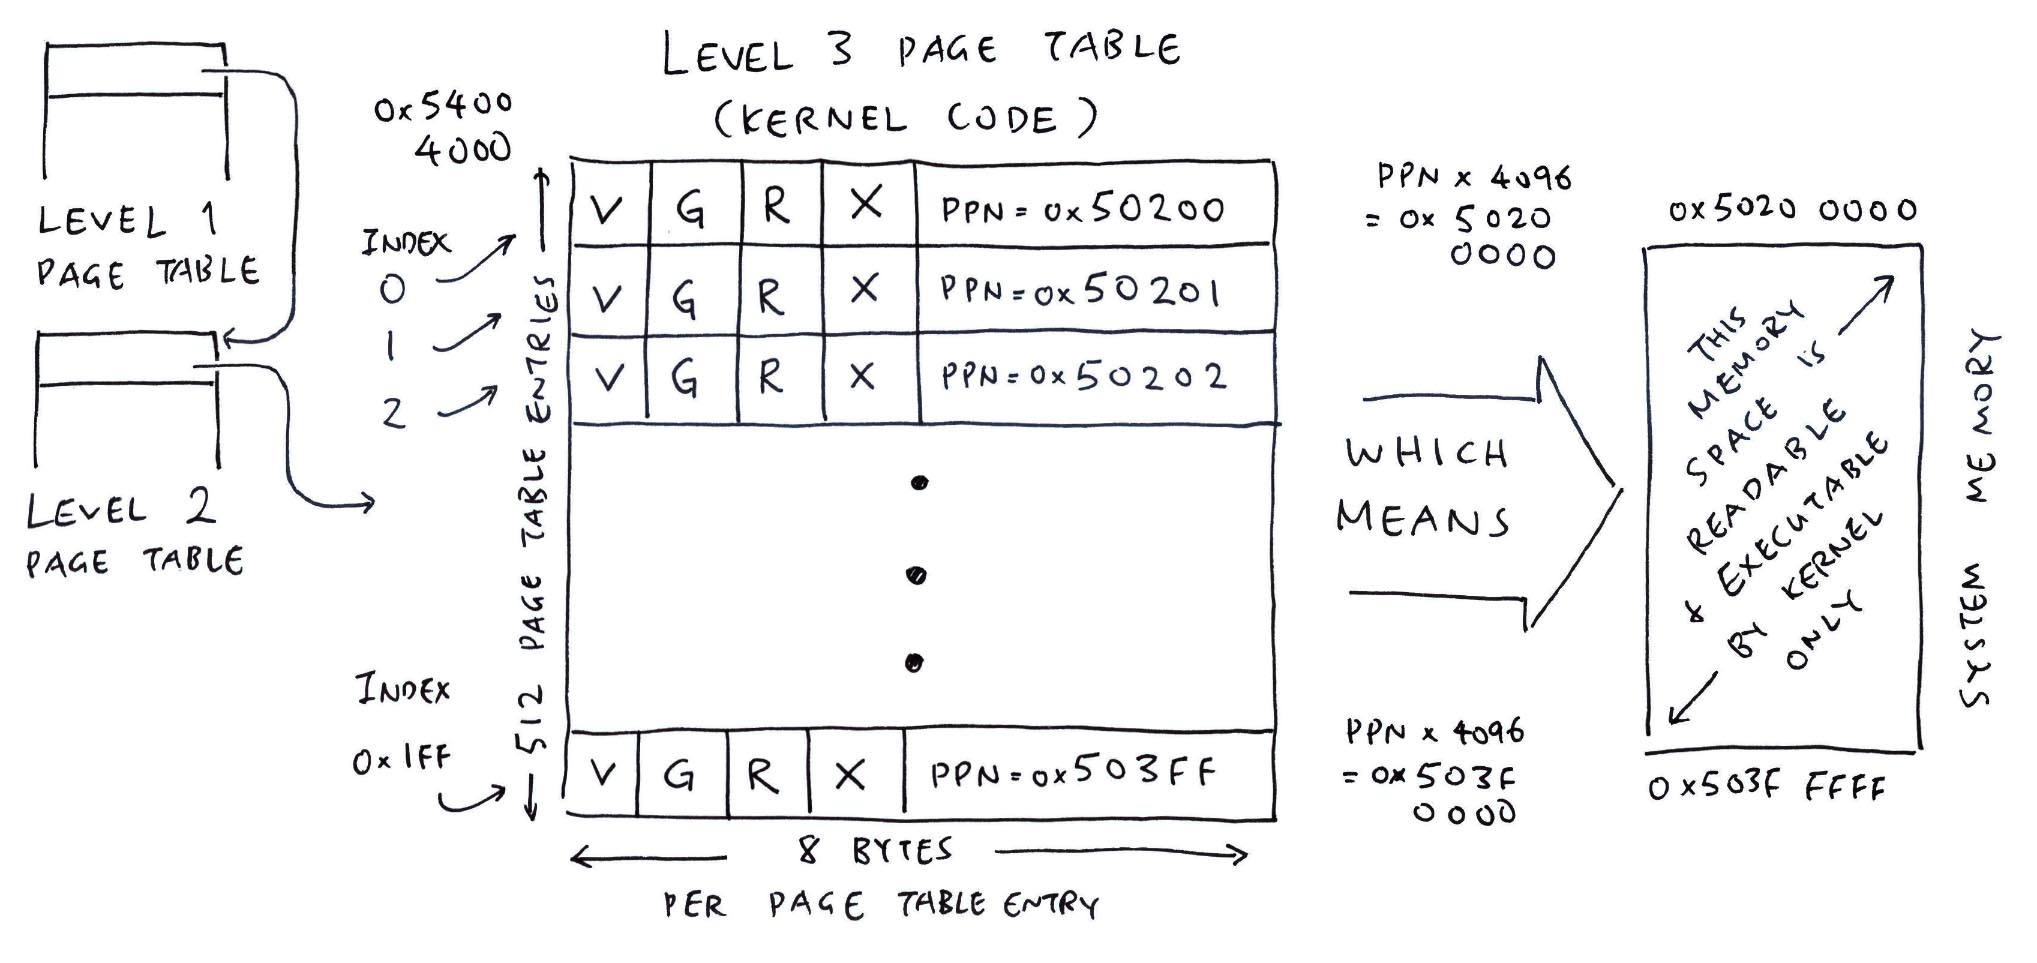 LEVEL 3 PAGE TABLE
(KERNEL CODE)
LEVEL 1
PAGE TABLE
LEVEL 2
PAGE TABLE
0x5400
4000
INDEX
0
1
2
INDEX
0x1FF
512 PAGE TABLE ENTRIES
V G R X PPN = 0x50200
V G R X PPN = 0x50201
V G R X PPN = 0x50202
V G R X PPN = 0x503FF
8 BYTES
PER PAGE TABLE ENTRY
PPN x 4096
= 0x5020
0000
WHICH
MEANS
PPN x 4096
= 0x503F
0000
0x5020 0000
THIS
MEMORY
SPACE is
READABLE
& EXECUTABLE
BY KERNEL
ONLY
0x503F FFFF
SYSTEM MEMORY